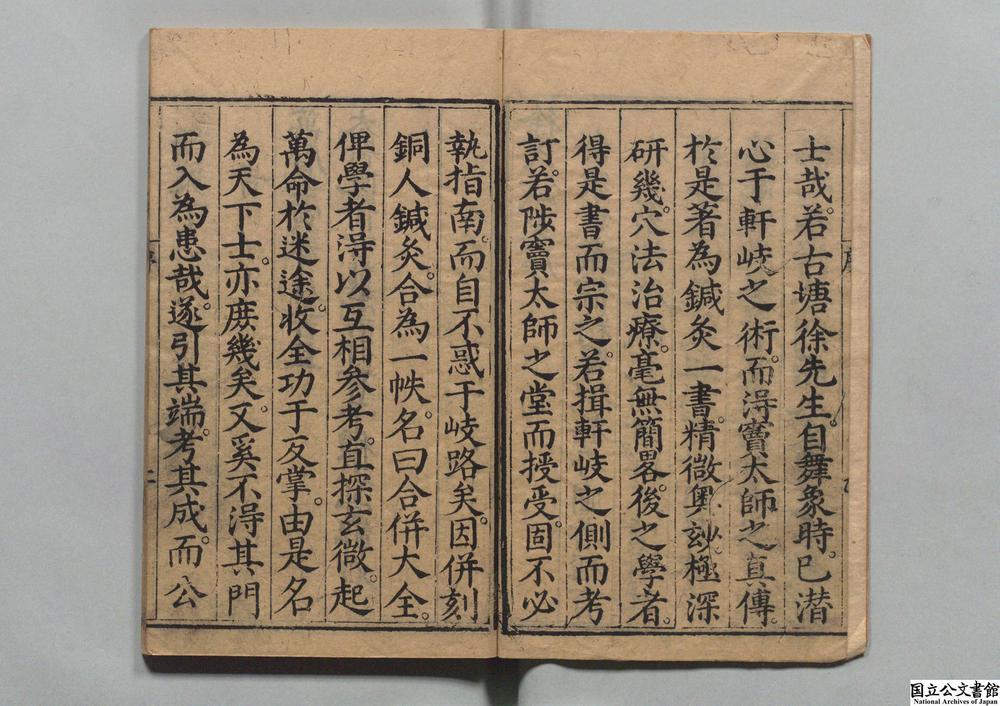 士哉。若古塘徐先生。自舞象時。已潜
心于軒岐之術。而得竇太師之真傳。
於是著為鍼灸一書。精微奥玅極深
研幾。穴法治療。毫無簡畧。後之學者。
得是書而宗之。若揖軒岐之側而考
訂。若陟竇太師之堂而授受。固不必
執指南。而自不惑于岐路矣。因併刻
銅人鍼灸。合為一帙。名曰合併大全。
俾學者淂以互相參考。直探玄微。起
萬命於迷途。收全功于反掌。由是名
為天下士。亦庻幾矣。又奚不淂其門
而入為患哉。遂引其端。考其成。而公
序
二
国立公文書館
National Archives of Japan